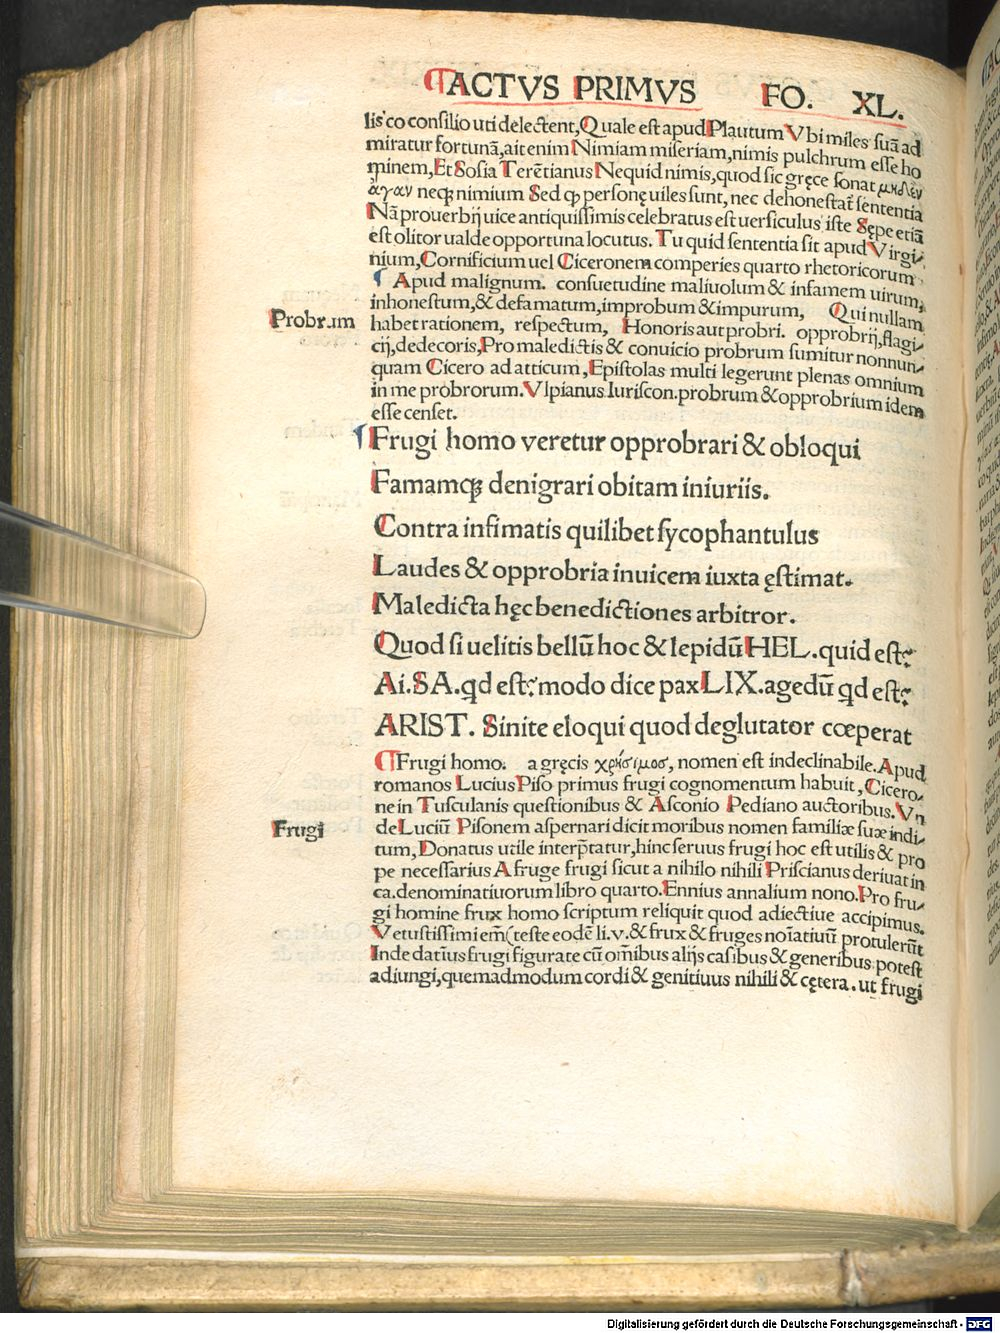 ACTVS PRIMVS FO. XL.
lis co consilio uti delectent, Quale est apud Plautum Vbi miles suã ad
miratur fortunã, ait enim Nimiam miseriam, nimis pulchrum esse ho
minem, Et Sosia Terẽtianus Nequid nimis, quod sic gręce sonat μηδὲν
ἄγαν neqꝫ nimium Sed ꝙ personę uiles sunt, nec dehonestat̃ sententia
Nã prouerbij uice antiquissimis celebratus est uersiculus iste Sępe etiã
est olitor ualde opportuna locutus. Tu quid sententia sit apud Virgi⸗
nium, Cornificium uel Ciceronem comperies quarto rhetoricorum
¶ Apud malignum. consuetudine maliuolum & infamem uirum,
inhonestum, & defamatum, improbum & impurum, Qui nullam
Probrum
habet rationem, respectum, Honoris aut probri. opprobrij, flagi⸗
cij, dedecoris, Pro maledictis & conuicio probrum sumitur nonnun⸗
quam Cicero ad atticum, Epistolas multi legerunt plenas omnium
in me probrorum. Vlpianus Iuriscon. probrum & opprobrium idem
esse censet.
¶ Frugi homo veretur opprobrari & obloqui
Famamqꝫ denigrari obitam iniuriis.
Contra infimatis quilibet sycophantulus
Laudes & opprobria inuicem iuxta ęstimat.
Maledicta hęc benedictiones arbitror.
Quod si uelitis bellũ hoc & lepidũ HEL. quid est?
Ai. SA. qd est? modo dice pax LIX. agedũ qd est?
ARIST. Sinite eloqui quod deglutator cœperat
¶ Frugi homo. a gręcis χρήσιμοσ, nomen est indeclinabile. Apud
romanos Lucius Piso primus frugi cognomentum habuit, Cicero⸗
ne in Tusculanis questionibus & Asconio Pediano auctoribus. Vn
Frugi
de Luciũ Pisonem aspernari dicit moribus nomen familiæ suæ indi⸗
tum, Donatus utile interp̃tatur, hinc seruus frugi hoc est utilis & pro
pe necessarius A fruge frugi sicut a nihilo nihili Priscianus deriuat in
ca. denominatiuorum libro quarto. Ennius annalium nono. Pro fru⸗
gi homine frux homo scriptum reliquit quod adiectiue accipimus.
Vetustissimi em̃ (teste eodẽ li. v. & frux & fruges noĩatiuũ protulerũt
Inde datiuus frugi figurate cũ oм̃ibus alijs casibus & generibus potest
adiungi, quemadmodum cordi & genitiuus nihili & cętera. ut frugi
Digitalisierung gefördert durch die Deutsche Forschungsgemeinschaft - DFG